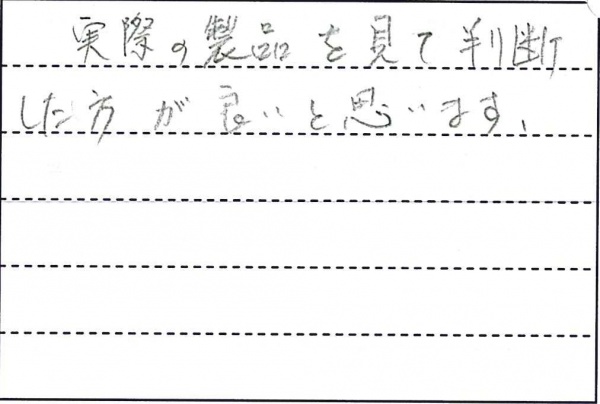 実際の製品を見て判断
した方が良いと思います、